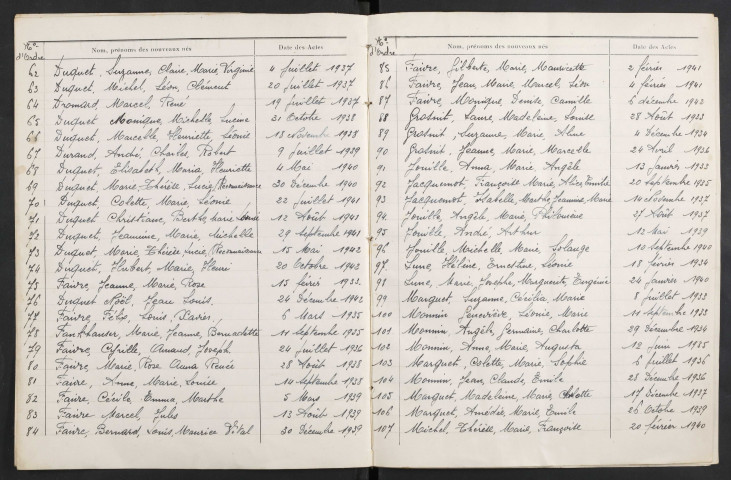 Nos d'Ordre Nom, prénoms des nouveaux nés Date des Actes
62 Duquet, Suzanne, Claire, Marie, Virginie 4 Juillet 1937
63 Duquet, Michel, Léon, Clément 20 Juillet 1937
64 Dromard, Marcel, René 19 Juillet 1937
65 Duquet Monique, Michelle, Lucine 31 Octobre 1938
66 Duquet, Marcelle, Henriette, Léonie 18 Novembre 1938
67 Durand, André, Charles, Robert 9 Juillet 1939
68 Duquet, Elisabeth, Maria, Henriette 4 Mai 1940
69 Duquet, Marie-Thérèse, Lucie, 20 Décembre 1940
70 Duquet, Colette, Marie, Léonie 22 Juillet 1941
71 Duquet Christiane, Berthe, Marie 12 Août 1941
72 Duquet, Jeannine, Marie, Michelle 29 Septembre 1941
73 Duquet, Marie, Thérèse, Lucie, 15 Mai 1942
74 Duquet, Hubert, Marie, Henri 20 Octobre 1943
75 Faivre, Jeanne, Marie, Rose 15 Février 1932
76 Duquet Noël, Jean Louis 24 Décembre 1942
77 Faivre, Félix, Louis, Xavier 6 Mars 1935
78 Fankhauser, Marie, Jeanne, Bernadette 11 Septembre 1935
79 Faivre, Cyrille, Amand, Joseph 24 Juillet 1936
80 Faivre, Marie, Rose Anna Renée 28 Août 1938
81 Faivre, Anne, Marie, Louise 14 Septembre 1938
82 Faivre, Cécile Emma, Marthe 5 Mars 1939
83 Faivre Marcel, Jules 13 Août 1939
84 Faivre, Bernard, Louis, Maurice Vital 30 Décembre 1939
Nos d'Ordre Nom, prénoms des nouveaux nés Date des Actes
85 Faivre, Gilberte, Marie, Mauricette 2 février 1941
86 Faivre, Jean, Marie, Marcel, Léon 4 février 1941
87 Faivre, Monique, Denise, Camille 6 décembre 1942
88 Laure, Madeleine, 28 Août 1933
89 Suzanne, Marie, Aline 4 Décembre 1934
90 Jeanne, Marie, Marcelle 24 Avril 1936
91 Jouille, Anna, Marie, Angèle 13 Janvier 1933
92 Jacquemot, Françoise Marie, Alice, Emilie 20 Septembre 1935
93 Jacquemot, Isabelle, Marthe, Jeanne, Marie 14 Octobre 1937
94 Jouille, Angèle, Marie, Philomène 27 Août 1937
95 Jouille, André, Arthur 12 Mai 1939
96 Jouille, Michelle, Marie, Solange 10 Septembre 1940
97 Hélène, Ernestine, Léonie 18 février 1934
98 Marie, Josèphe, Marguerite, Eugénie 24 Janvier 1940
99 Marguet, Suzanne, Cécilia, Marie 8 Juillet 1933
100 Monnin, Geneviève, Léonie, Marie 11 Septembre 1933
101 Monnin, Angèle, Germaine, Charlotte 29 Décembre 1934
102 Monnin, Anne, Marie, Augusta 12 Juin 1935
103 Marguet, Colette, Marie, Sophie 6 Juillet 1936
104 Monnin, Jean, Claude, Emile 28 Décembre 1936
105 Marguet, Madeleine, Marie, Colette 17 Décembre 1937
106 Marguet, Amédée, Marie, Emile 26 Octobre 1939
107 Michel, Thérèse, Marie, Françoise 20 février 1940